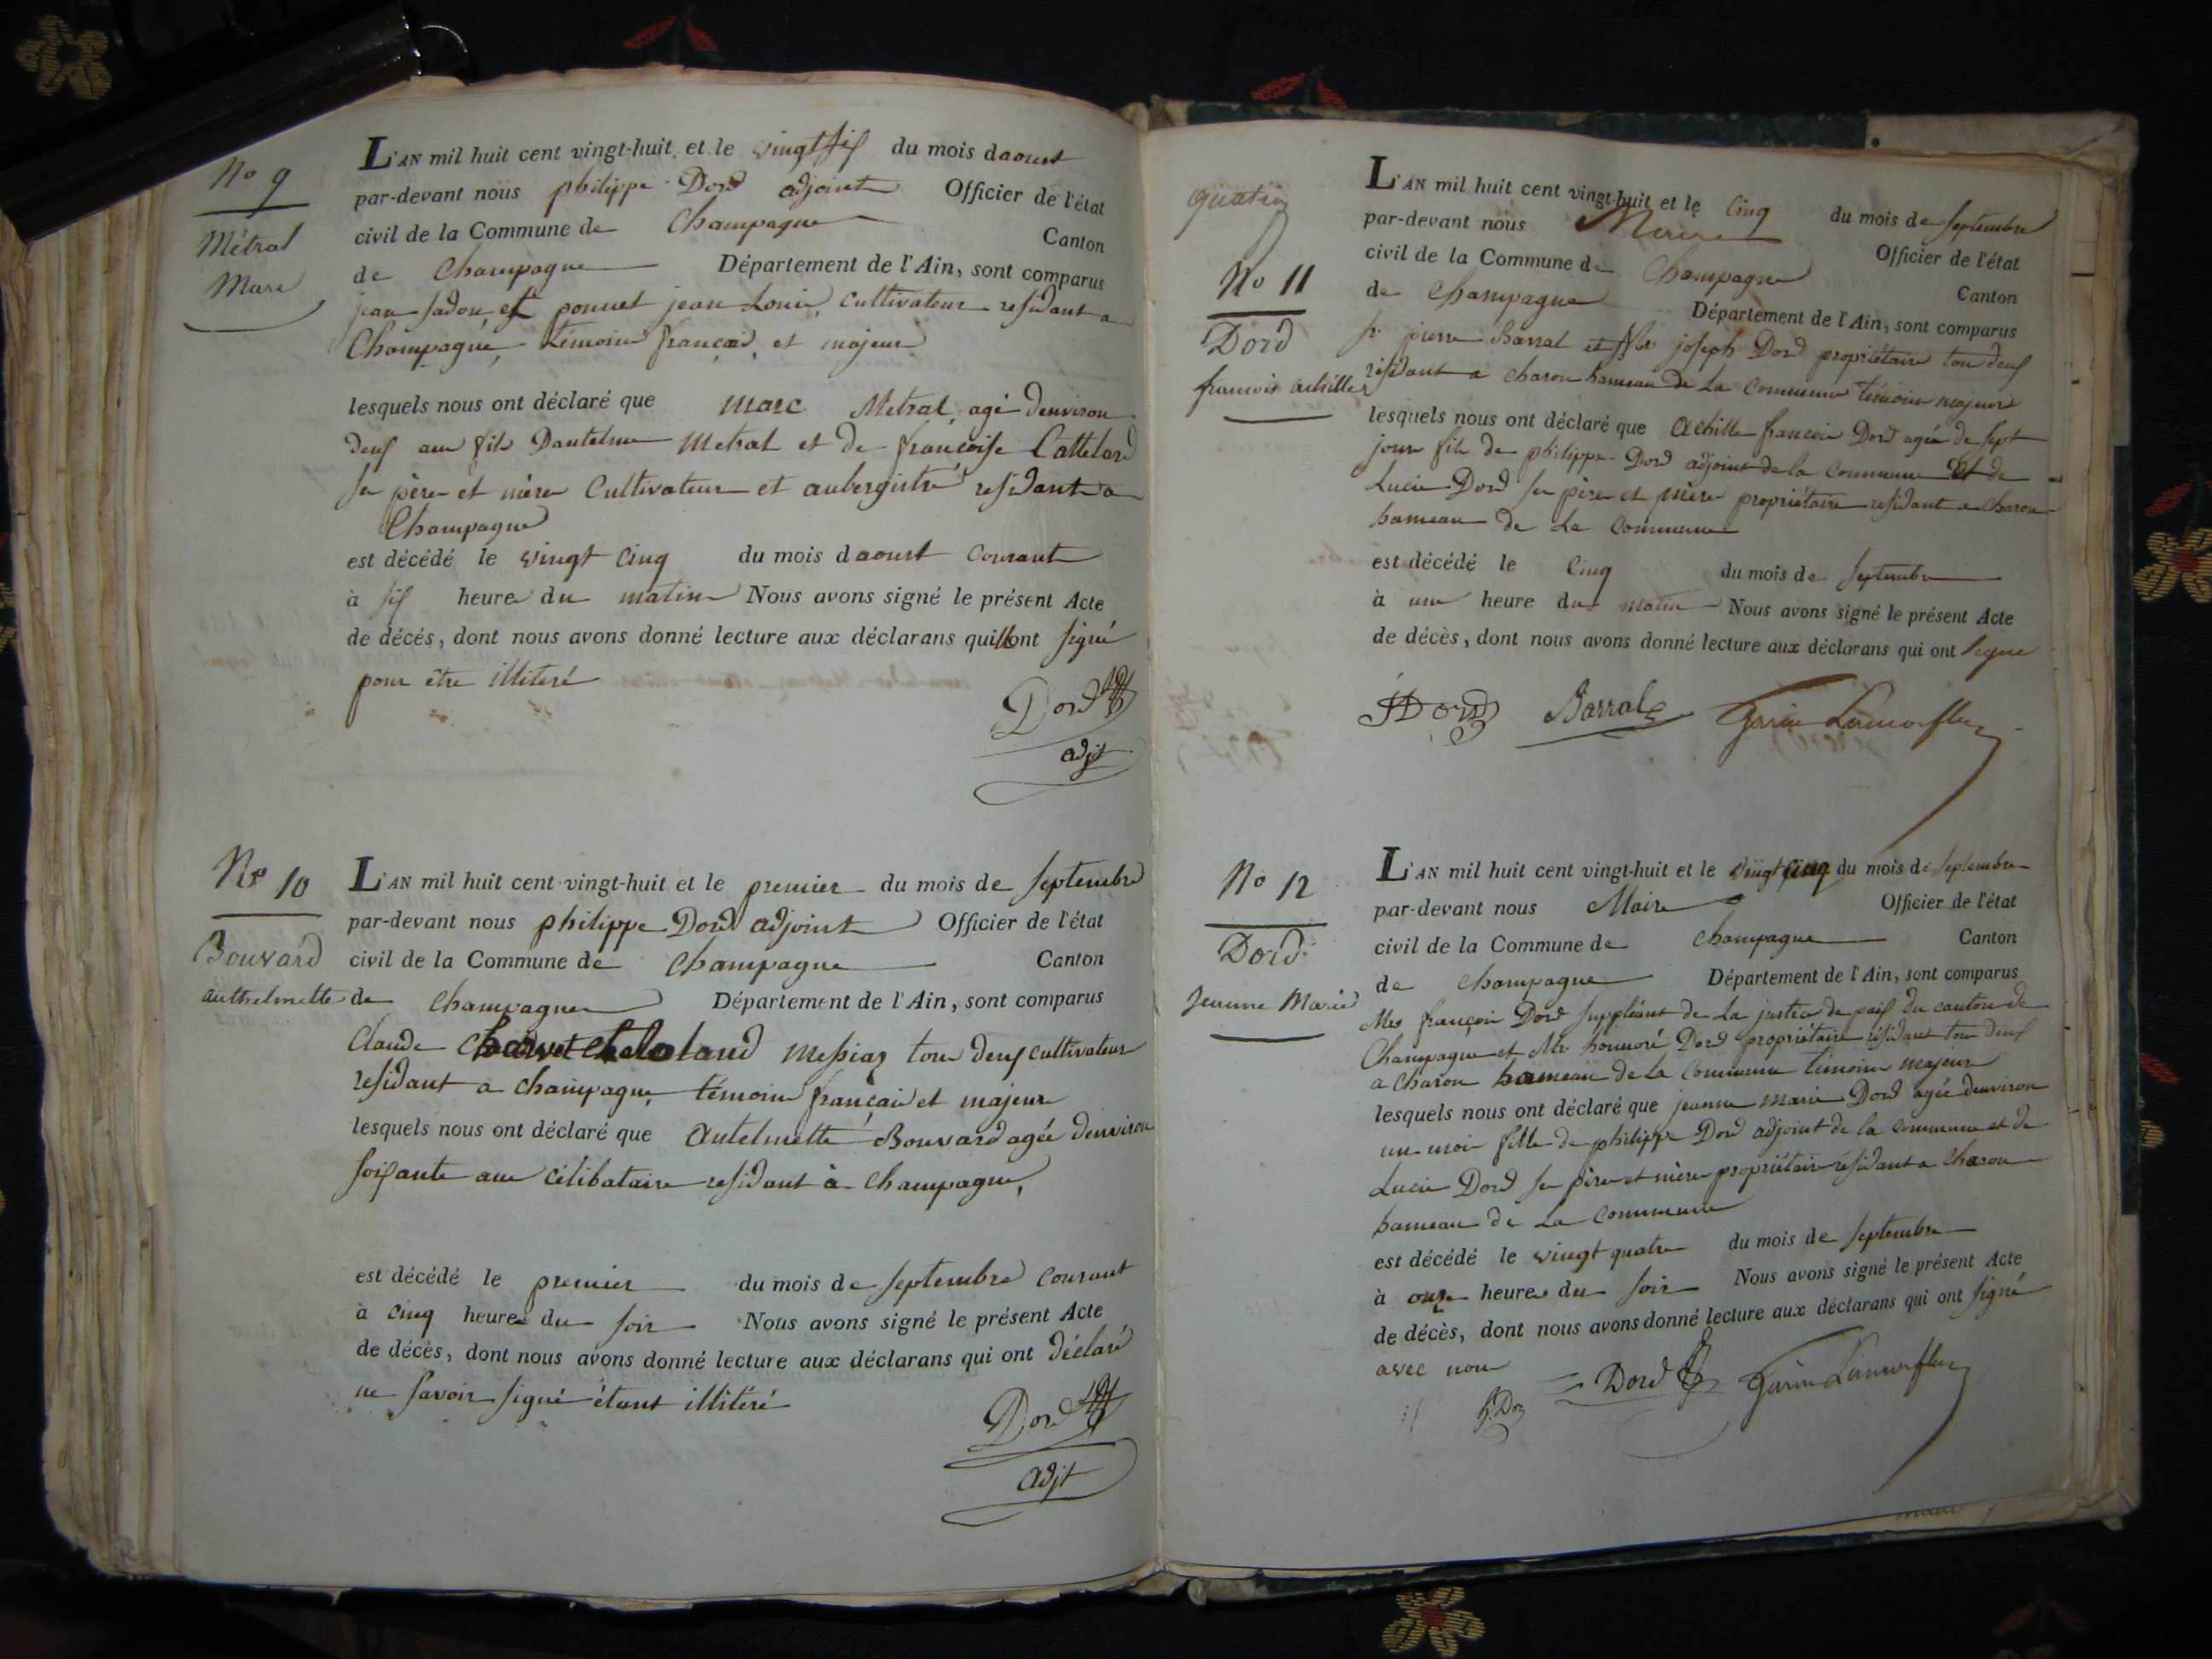 No 9
Métral
Marc
L'AN mil huit cent vingt-huit et le vingt six du mois daoust
par-devant nous philippe Dord adjoint Officier de l'état
civil de la Commune de Champagne Canton
de Champagne Département de l'Ain, sont comparus
jean et ponnet jean Louis cultivateur residant a
Champagne, témoins français et majeur
lesquels nous ont déclaré que Marc Metral agé denviron
deux ans fils Dantelme Metral et de françoise Cattelard
se père et mère Cultivateur et aubergiste residant a
Champagne
est décédé le vingt cinq du mois daoust Courant
à six heure du matin Nous avons signé le présent Acte
de décès, dont nous avons donné lecture aux déclarans qui ont signé
pour être illiteré
Dord
adjt
No 10
Bouvard
authelmette
L'AN mil huit cent vingt-huit et le premier du mois de septembre
par-devant nous philippe Dord adjoint Officier de l'état
civil de la Commune de Champagne Canton
de Champagne Département de l'Ain, sont comparus
Claude Messiaz tous deux cultivateur
residant a champagne témoin français et majeur
lesquels nous ont déclaré que Antelmette Bouvard agée denviron
soixante ans célibataire residant à Champagne,
est décédé le premier du mois de septembre Courant
à cinq heures du soir Nous avons signé le présent Acte
de décès, dont nous avons donné lecture aux déclarans qui ont déclaré
ne savoir signé étant illitéré
Dord
adjt
quatre
No 11
Dord
francois achille
L'AN mil huit cent vingt-huit et le Cinq du mois de septembre
par-devant nous Maire Officier de l'état
civil de la Commune de Champagne Canton
de Champagne Département de l'Ain, sont comparus
sr pierre Barral et Mr joseph Dord propriétaire tou deux
residant a Charon hameau de La Commune témoin majeurs
lesquels nous ont déclaré que Achille francois Dord agée de sept
jour fils de philippe Dord adjoint de la Commune Et de
Lucie Dord se père et mère propriétaire residant a Charon
hameau de La Commune
est décédé le Cinq du mois de septembre
à une heure du matin Nous avons signé le présent Acte
de décès, dont nous avons donné lecture aux déclarans qui ont signé
JDord Barral
No 12
Dord
Jeanne Marie
L'AN mil huit cent vingt-huit et le vingt cinq du mois de septembre
par-devant nous Maire Officier de l'état
civil de la Commune de Champagne Canton
de Champagne Département de l'Ain, sont comparus
Mes françois Dord suppléant de La justice de paix du canton de
Champagne et Mr honnoré Dord propriétaire residant tou deux
a Charon hameau de La Commune témoin majeur
lesquels nous ont déclaré que jeanne Marie Dord agée denviron
un moi fille de philippe Dord adjoint de la commune et de
Lucie Dord se père et mère propriétaire residant a Charon
hameau de La Commune
est décédé le vingt quatre du mois de septembre
à onze heures du soir Nous avons signé le présent Acte
de décès, dont nous avons donné lecture aux déclarans qui ont signé
avec nous
Dord